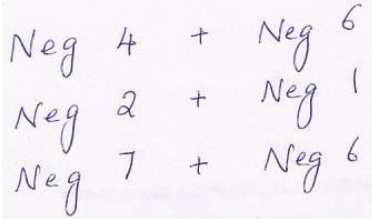 Neg 4 + Neg 6
Neg 2 + Neg 1
Neg 7 + Neg 6